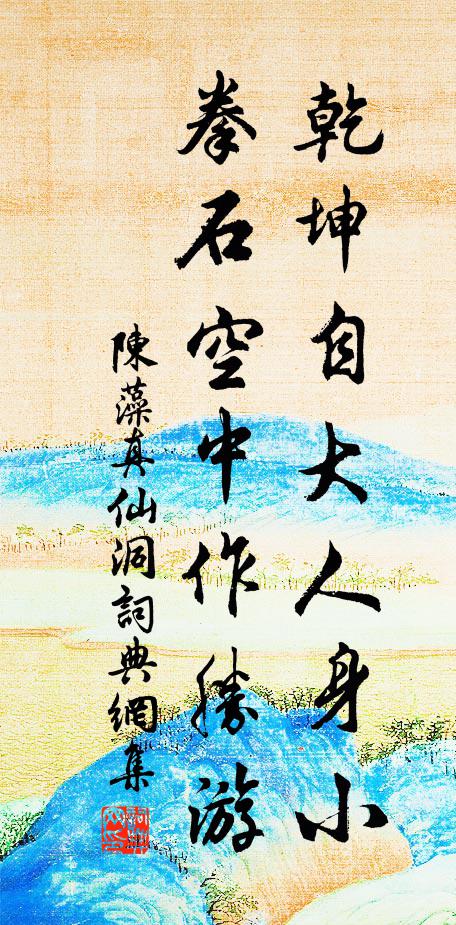 乾坤自大人身小
拳石空中作勝游
陳藻真仙洞詞典網集